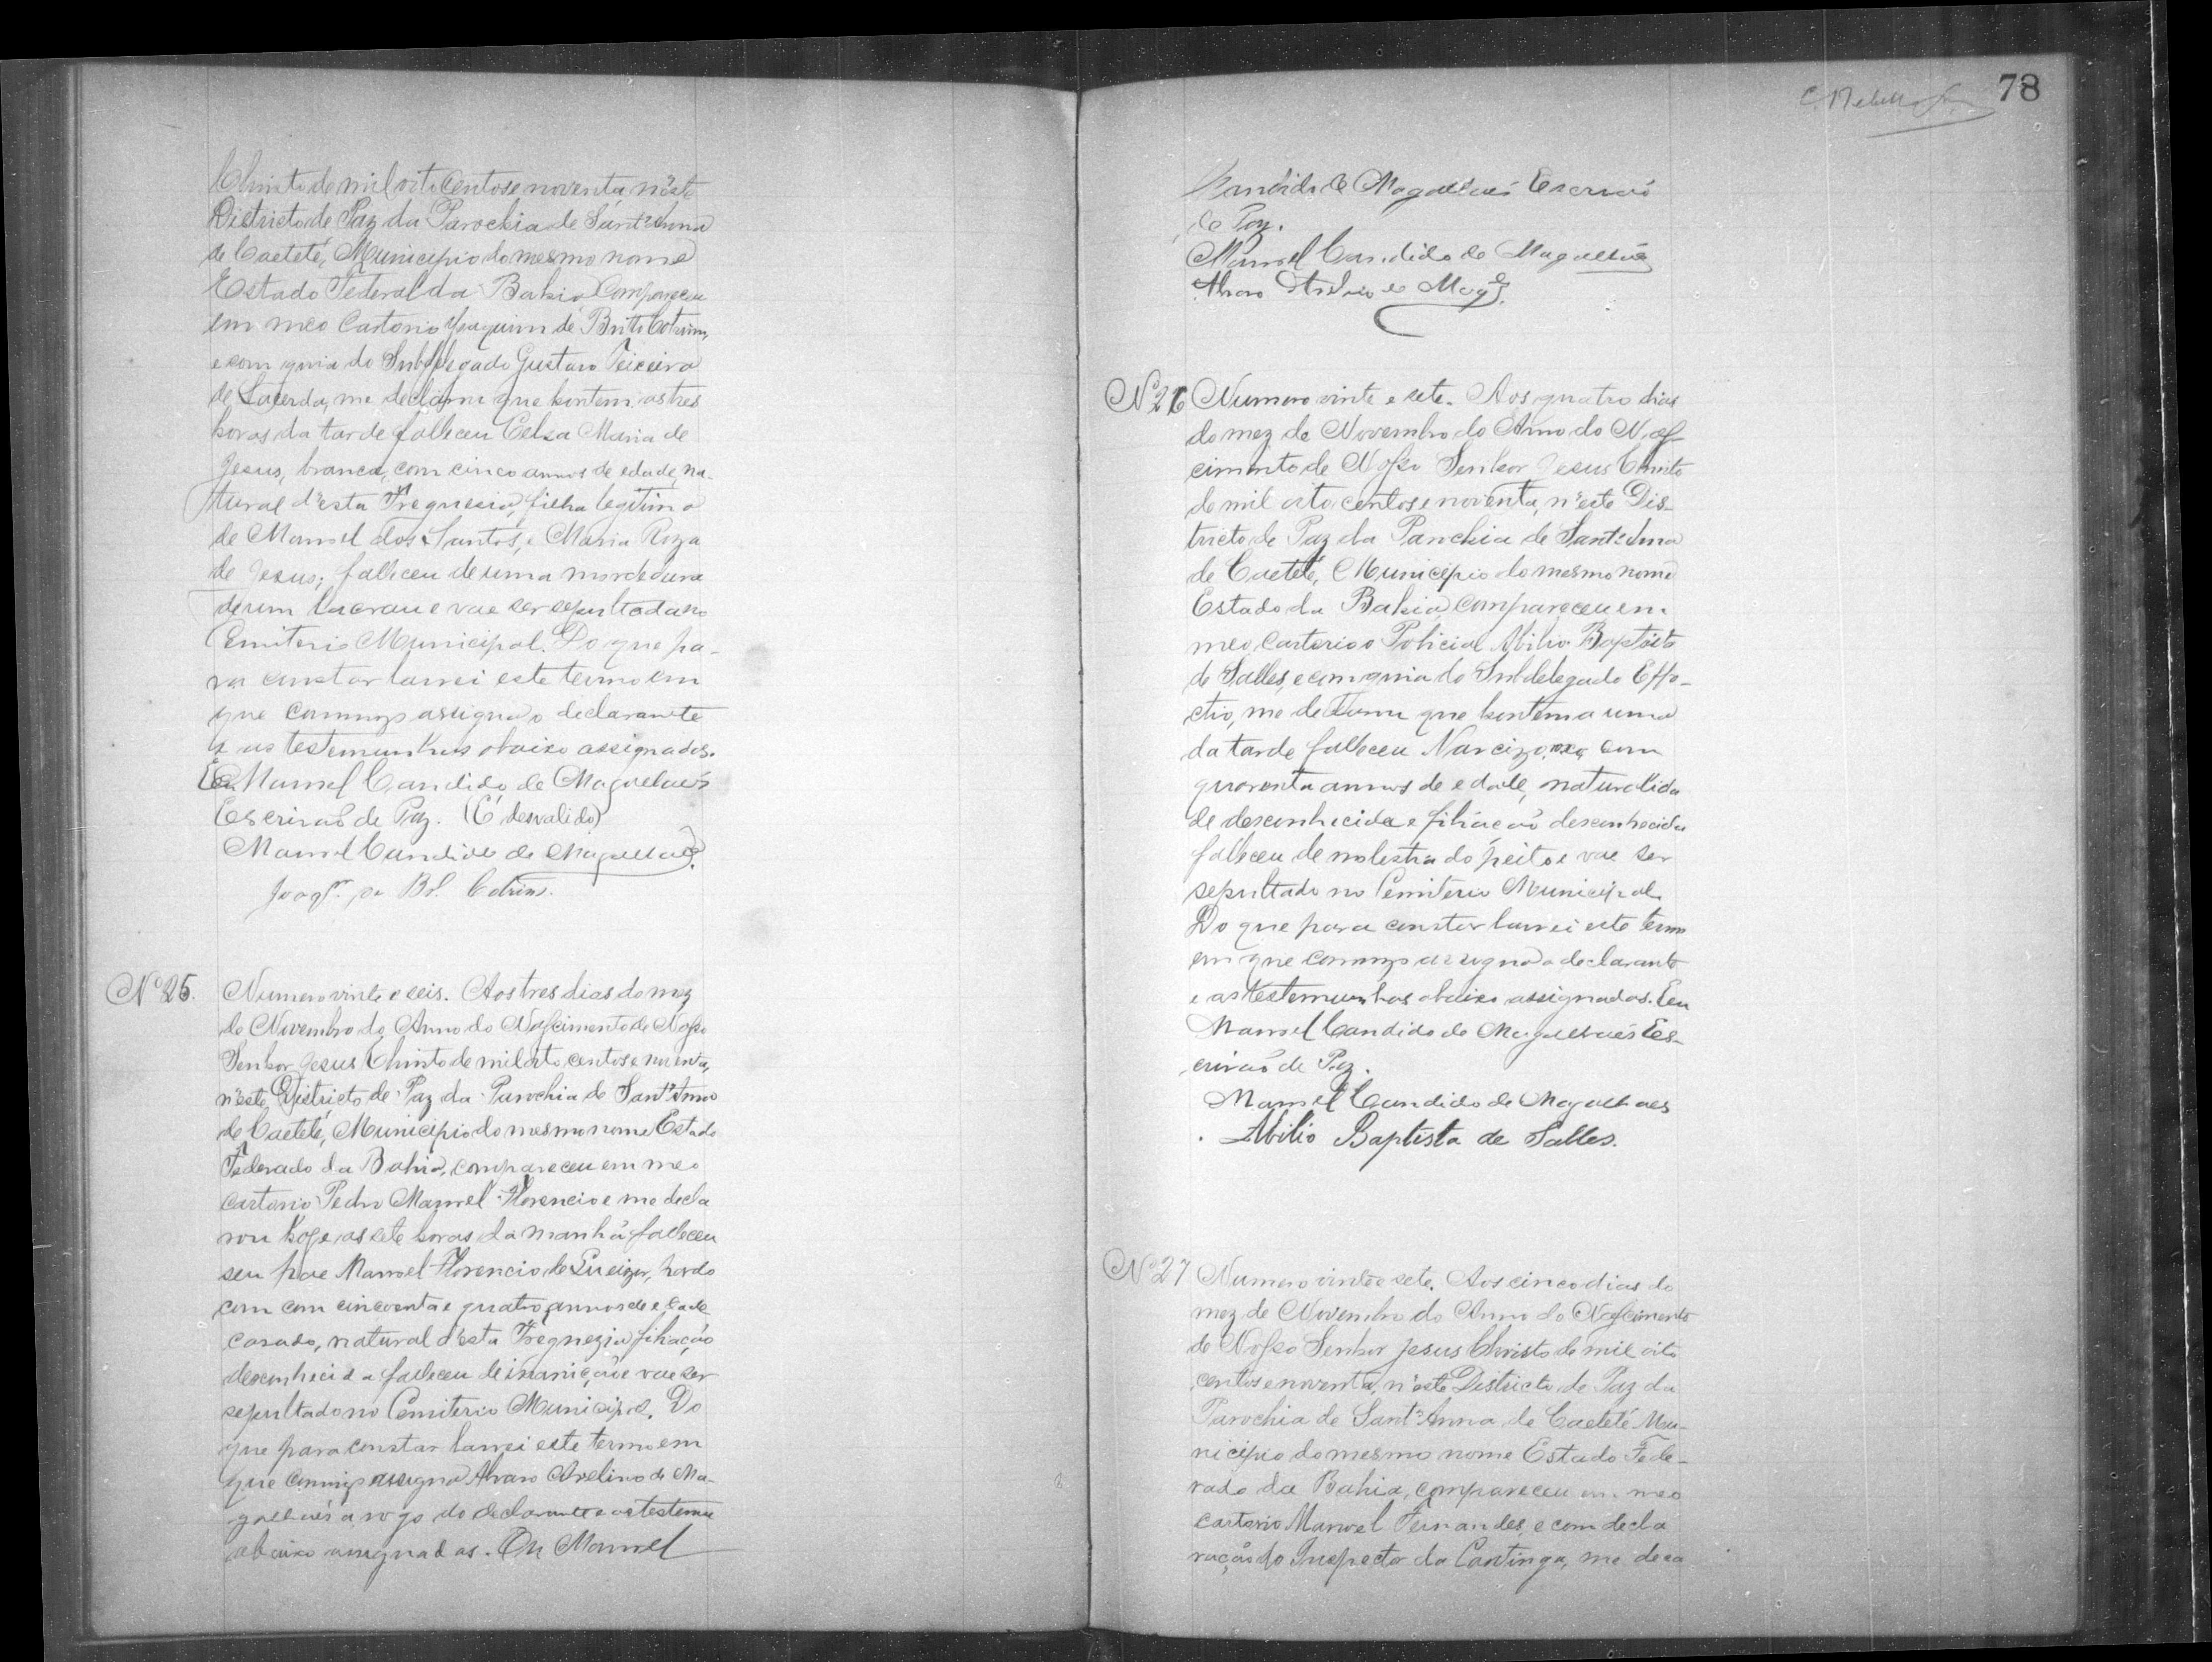 Christo de mil oito Centos e noventa n'este
Districto de Paz da Parochia de Sant'Anna
de Caeteté, Municipio do mesmo nome
Estado Federal da Bahia Compareceu
em meo Cartorio Joaquim de Britto Cotrim,
e com guia do Subdelegado Gustavo Teixeira
de Lacerda, me declarou que hontem as tres
horas da tarde falleceu Celsa Maria de
Jesus, branca, com cinco annos de edade, na-
tural d'esta Freguesia, filha legitima
de Manoel dos Santos, e Maria Roza
de Jesus; falleceu de uma mordedura
de um lacrau e vae ser sepultada no
Cemiterio Municipal. Do que pa-
ra constar lavrei este termo em
que commigo assigna o declarante
e as testemunhas abaixo assignados.
Eu Manoel Candido de Magalhaẽs
Escrivaõ de Paz. (É desvalido)
Manoel Candido de Magalhaẽs.
Joaqm. de Bo. Cotrim.
No 26.
Numero vinte e seis. Aos tres dias do mez
de Novembro do Anno do Nascimento de Nosso
Senhor Jesus Christo de mil oito centos e noventa,
n'este Districto de Paz da Parochia de Sant'Anna
de Caeteté, Municipio do mesmo nome Estado
Federado da Bahia, compareceu em meo
Cartorio Pedro Manoel Florencio e me decla
rou hoje as sete horas da manhã falleceu
seu pae Manoel Florencio de Queiroz, pardo
com com cincoenta e quatro annos de edade
casado, natural d'esta Freguezia filiação
desconhecida falleceu de inanição e vae ser
sepultado no Cemiterio Municipal. Do
que para constar lavrei este termo em
que commigo assigna Alvaro Avelino de Ma-
galhaẽs á rogo do declarante e as testemu
abaixo assignadas. Eu Manoel
78
Candido de Magalhaẽs Escrivaõ
de Paz.
Manoel Candido de Magalhaẽs
Alvaro Avelino de Magẽs.
No 26
Numero vinte e sete. Aos quatro dias
do mez de Novembro do Anno do Nas-
cimento de Nosso Senhor Jesus Christo
de mil oito centos e noventa, n'este Dis-
tricto de Paz da Parochia de Sant'Anna
de Caeteté, Municipio do mesmo nome
Estado da Bahia compareceu em
meo Cartorio o Policial Abilio Baptista
de Salles, e com guia do Subdelegado Effe-
ctivo, me declarou que hontem a uma
da tarde falleceu Narcizo com
quarenta annos de edade, naturalida
de desconhecida e filiacaõ desconhecida
falleceu de molestia do peito e vae ser
sepultado no Cemiterio Municipal.
Do que para constar lavrei este termo
em que commigo assigna o declarante
e as testemunhas abaixo assignadas. Eu
Manoel Candido de Magalhaẽs Es-
crivaõ de Paz.
Manoel Candido de Magalhaes
Abilio Baptista de Salles.
No 27
Numero vinte e sete. Aos cinco dias do
mez de Novembro do Anno do Nascimento
de Nosso Senhor Jesus Christo de mil oito
centos e noventa, n'este Districto de Paz da
Parochia de Sant'Anna de Caeteté Mu-
nicipio do mesmo nome Estado Fede-
rado da Bahia, compareceu em meo
cartorio Manoel Fernandes, e com decla
ração do Inspector da Caatinga, me deca